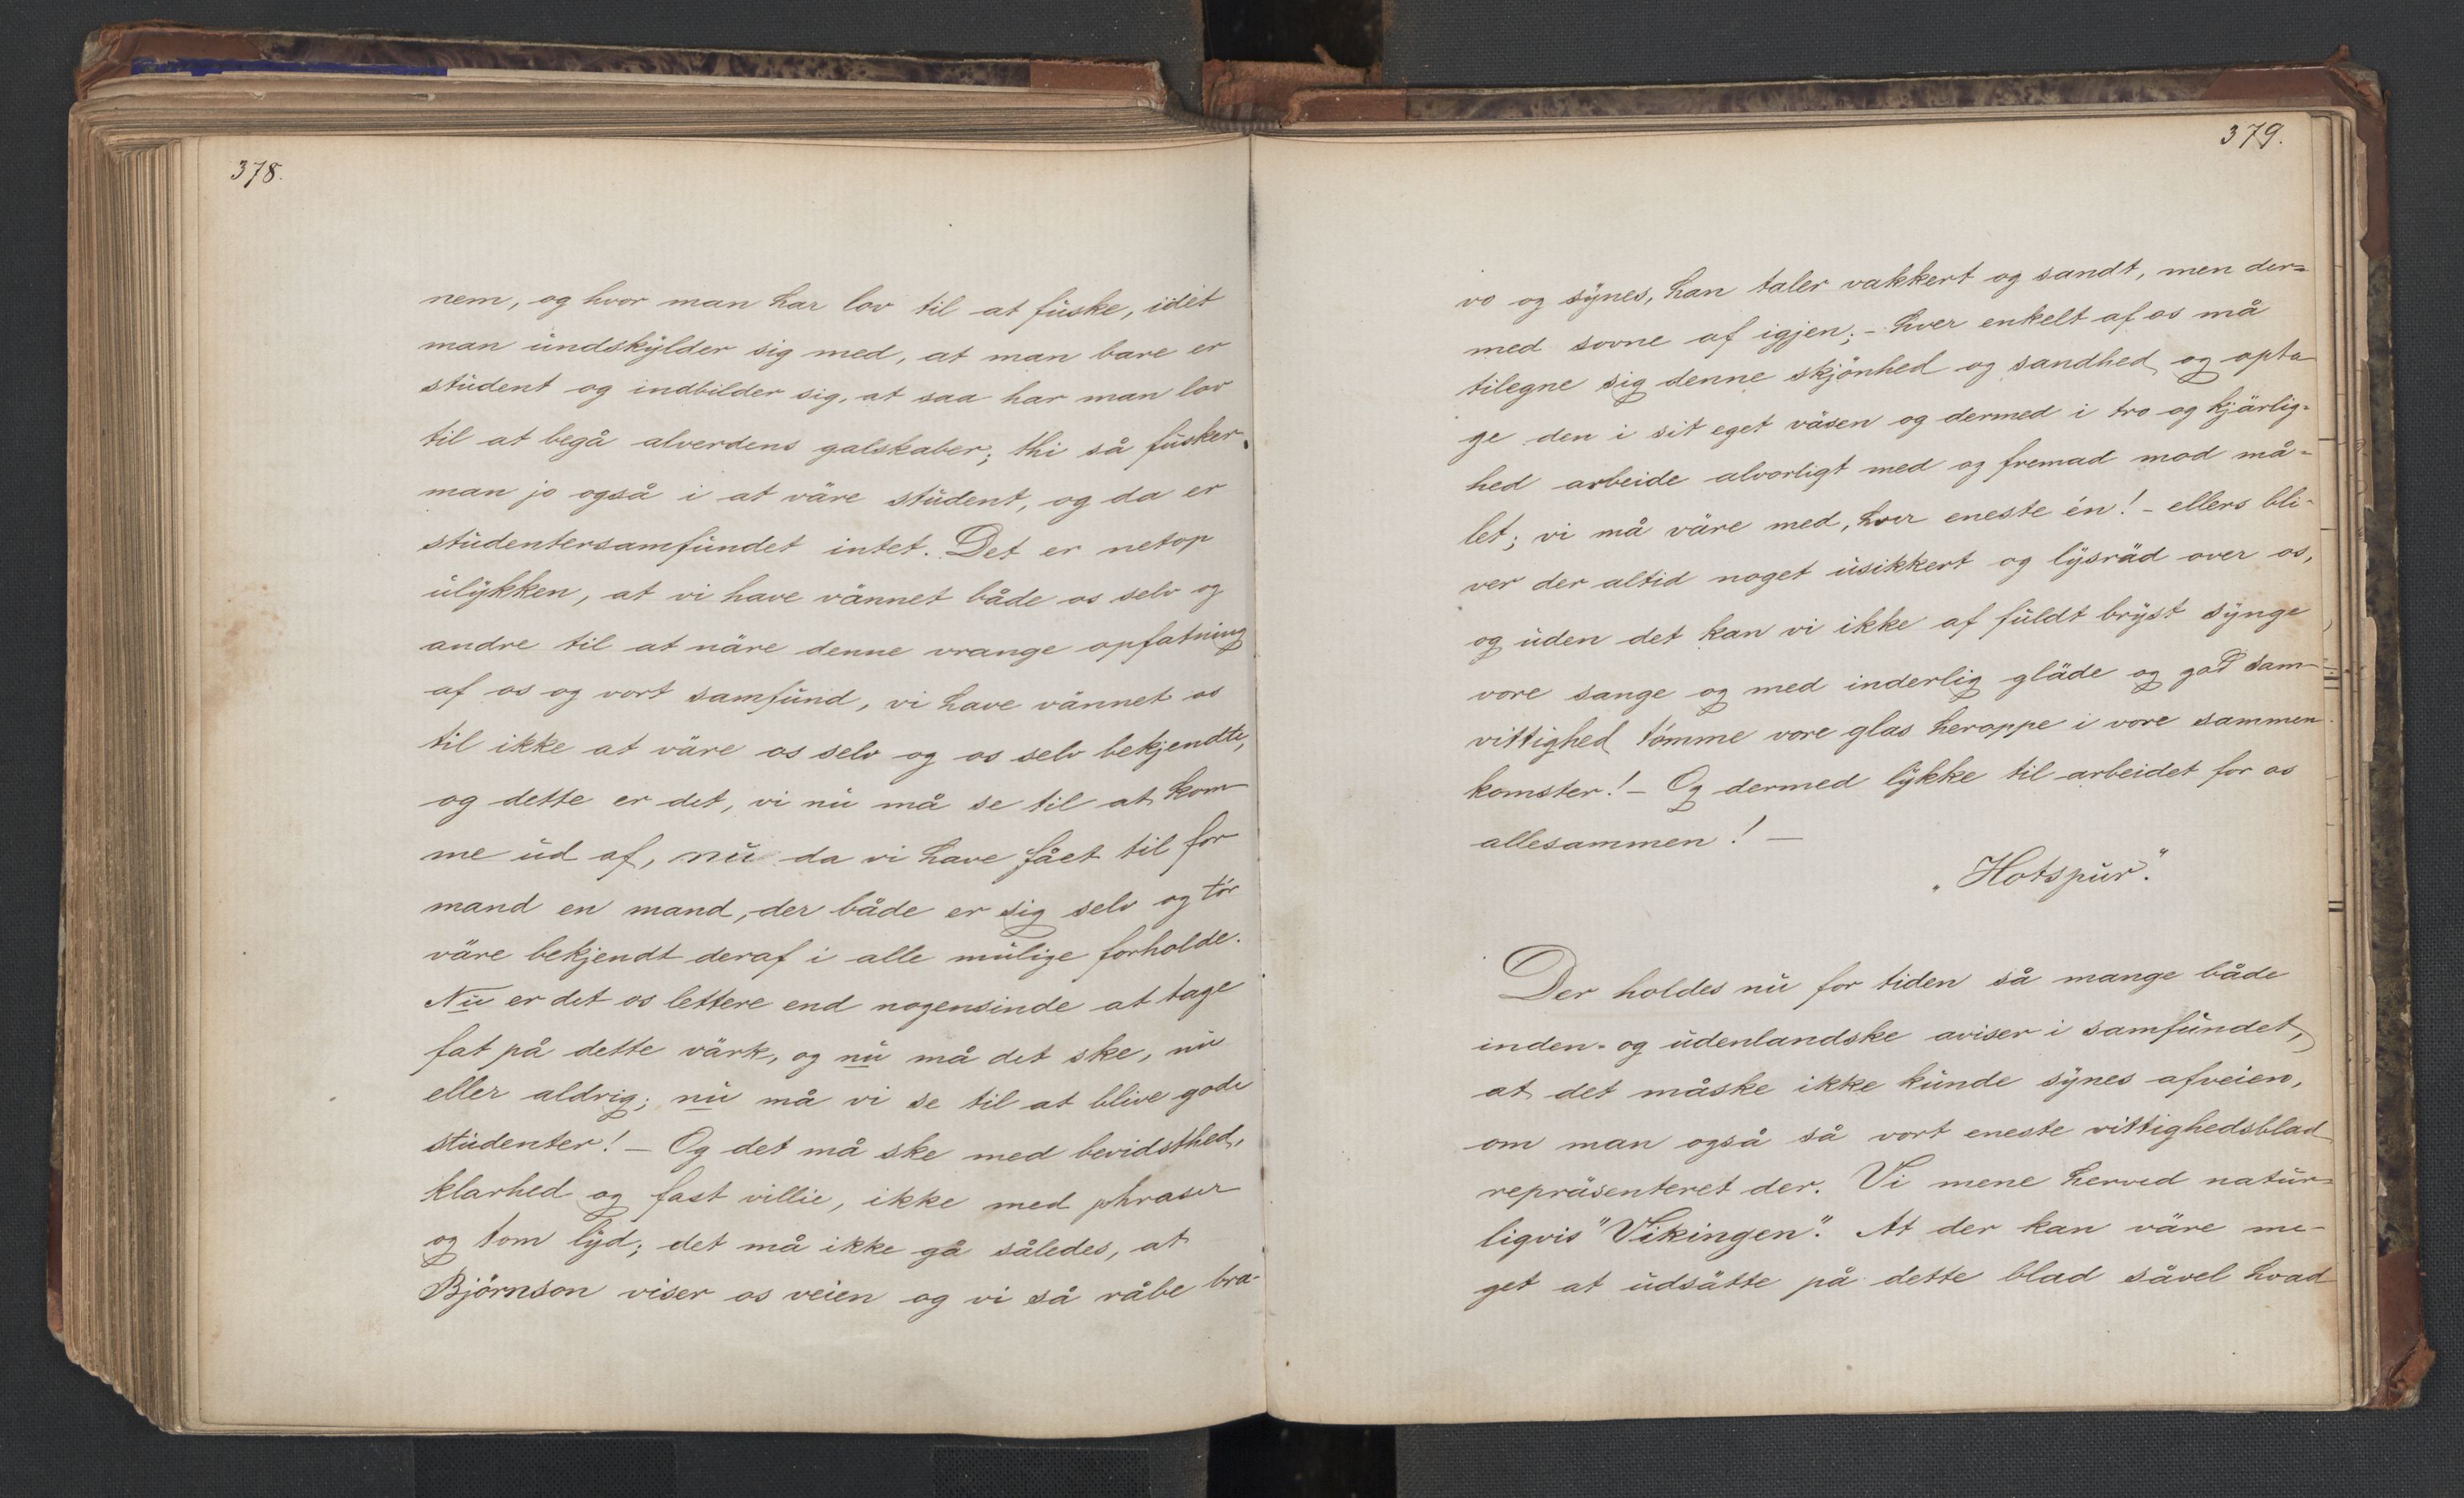 378.
nem, og hvor man har lov til at fuske, idet
man undskylder sig med, at man bare er
student og indbilder sig, at saa har man lov
til at begå alverdens galskaber; thi så fusker
man jo også i at väre student, og da er
studentersamfundet intet. Det er netop
ulykken, at vi have vännet både os selv og
andre til at näre denne vrange opfatning
af os og vort samfund, vi have vännet os
til ikke at väre os selv og os selv bekjendte,
og dette er det, vi nu må se til at kom-
me ud af, nu da vi have fået til for
mand en mand, der både er sig selv og tör
väre bekjendt deraf i alle mulige forholde.
Nu er det os lettere end nogensinde at tage
fat på dette värk, og nu må det ske, nu
eller aldrig; nu må vi se til at blive gode
studenter! - Og det må ske med bevidsthed,
klarhed og fast villie, ikke med phraser
og tom lyd; det må ikke gå således, at
Björnson viser os veien og vi så råbe bra-
379.
vo og synes, han taler vakkert og sandt, men der=
med sovne af igjen; - hver enkelt af os må
tilegne sig denne skjönhed og sandhed og opta
ge den i sit eget väsen og dermed i tro og kjärlig=
hed arbeide alvorligt med og fremad mod må-
let; vi må väre med, hver eneste én! - ellers bli-
ver der altid noget usikkert og lysräd over os,
og uden det kan vi ikke af fuldt bryst synge
vore sange og med inderlig gläde og god sam-
vittighed tömme vore glas heroppe i vore sammen
komster! - Og dermed lykke til arbeidet for os
allesammen! -
„Hotspur".
Der holdes nu for tiden så mange både
inden- og udenlandske aviser i samfundet,
at det måske ikke kunde synes afveien,
om man også så vort eneste vittighedsblad
repräsenteret der. Vi mene herved natur=
ligvis "Vikingen". At der kan väre me-
get at udsätte på dette blad såvel hvad